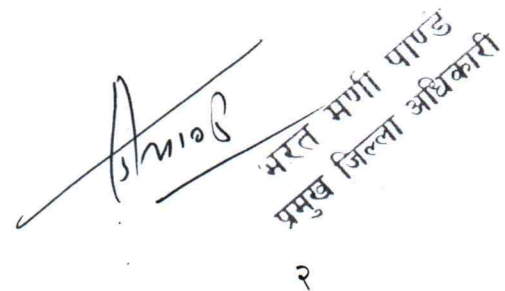 भरत मणी पाण्डे
प्रमुख जिल्ला अधिकारी
२